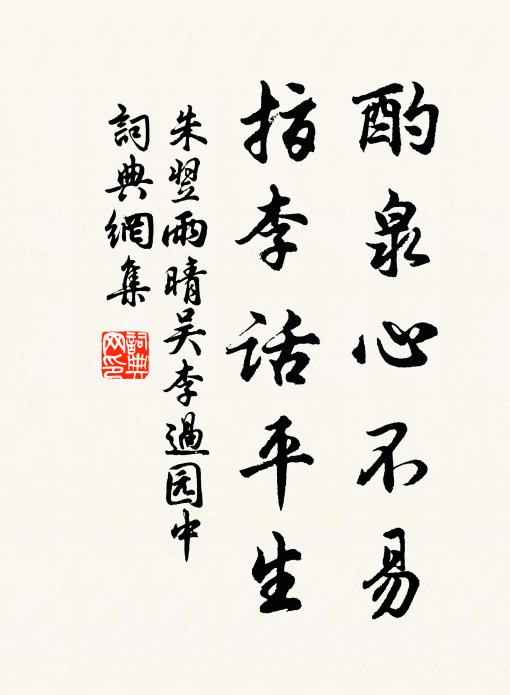 酌泉心不易
指李话平生
朱翌雨晴吴李過园中
詞典網集
詞典網印